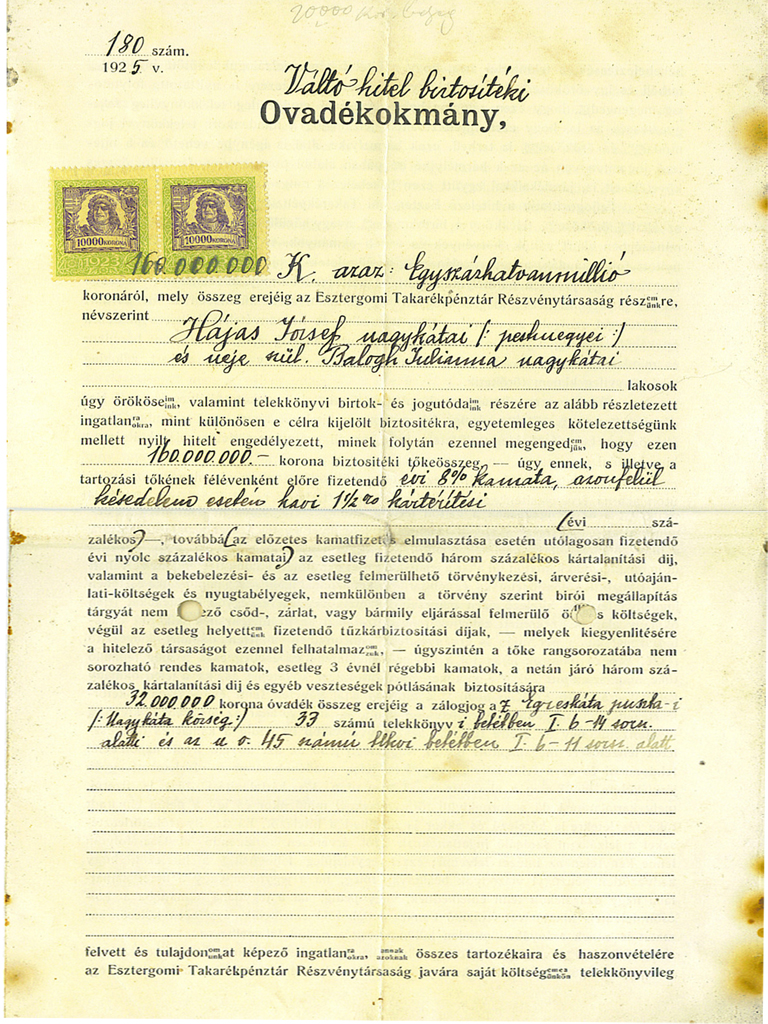 180 szám.
1925 v.
Váltó hitel biztositéki
Ovadékokmány,
10000 KORONA 10000 KORONA
1923
160.000.000 K. azaz: Egyszázhatvanmillió
koronáról, mely összeg erejéig az Esztergomi Takarékpénztár Részvénytársaság részemre, részünkre,
névszerint
Hájas József nagykátai /: pestmegyei :/
és neje szül. Balogh Julianna nagykátai
lakosok
úgy örököseim, örököseink, valamint telekkönyvi birtok- és jogutódaim jogutódaink részére az alább részletezett
ingatlanra, ingatlanokra, mint különösen e célra kijelölt biztosítékra, egyetemleges kötelezettségünk
mellett nyilt hitelt engedélyezett, minek folytán ezennel megengedem, megengedjük, hogy ezen
160.000.000.- korona biztositéki tőkeösszeg — úgy ennek, s illetve a
tartozási tőkének félévenként előre fizetendő évi 8% kamata, azonfelül
késedelem esetén havi 1 1/2 % kártérítési
(évi szá-
zalékos) —, továbbá (az előzetes kamatfizetés elmulasztása esetén utólagosan fizetendő
évi nyolc százalékos kamatai) az esetleg fizetendő három százalékos kártalanítási dij,
valamint a bekebelezési- és az esetleg felmerülhető törvénykezési, árverési-, utóaján-
lati-költségek és nyugtabélyegek, nemkülönben a törvény szerint birói megállapítás
tárgyát nem ező csőd-, zárlat, vagy bármily eljárással felmerülő ö s költségek,
végül az esetleg helyettem helyettünk fizetendő tűzkárbiztosítási díjak, — melyek kiegyenlitésére
a hitelező társaságot ezennel felhatalmazom, felhatalmazzuk, — úgyszintén a tőke rangsorozatába nem
sorozható rendes kamatok, esetleg 3 évnél régebbi kamatok, a netán járó három szá-
zalékos kártalanítási dij és egyéb veszteségek pótlásának biztosítására
32.000.000 korona óvadék összeg erejéig a zálogjog az Egreskáta puszta-i
/: Nagykáta község :/ 33 számú telekkönyvi betétben I. 6-14 sorsz.
alatti és az u. o. 45 számú tlkvi betétben I. 6-11 sorsz. alatt
felvett és tulajdonomat tulajdonunkat képező ingatlanra, ingatlanokra, annak azoknak összes tartozékaira és haszonvételére
az Esztergomi Takarékpénztár Részvénytársaság javára saját költségemen költségünkön telekkönyvileg